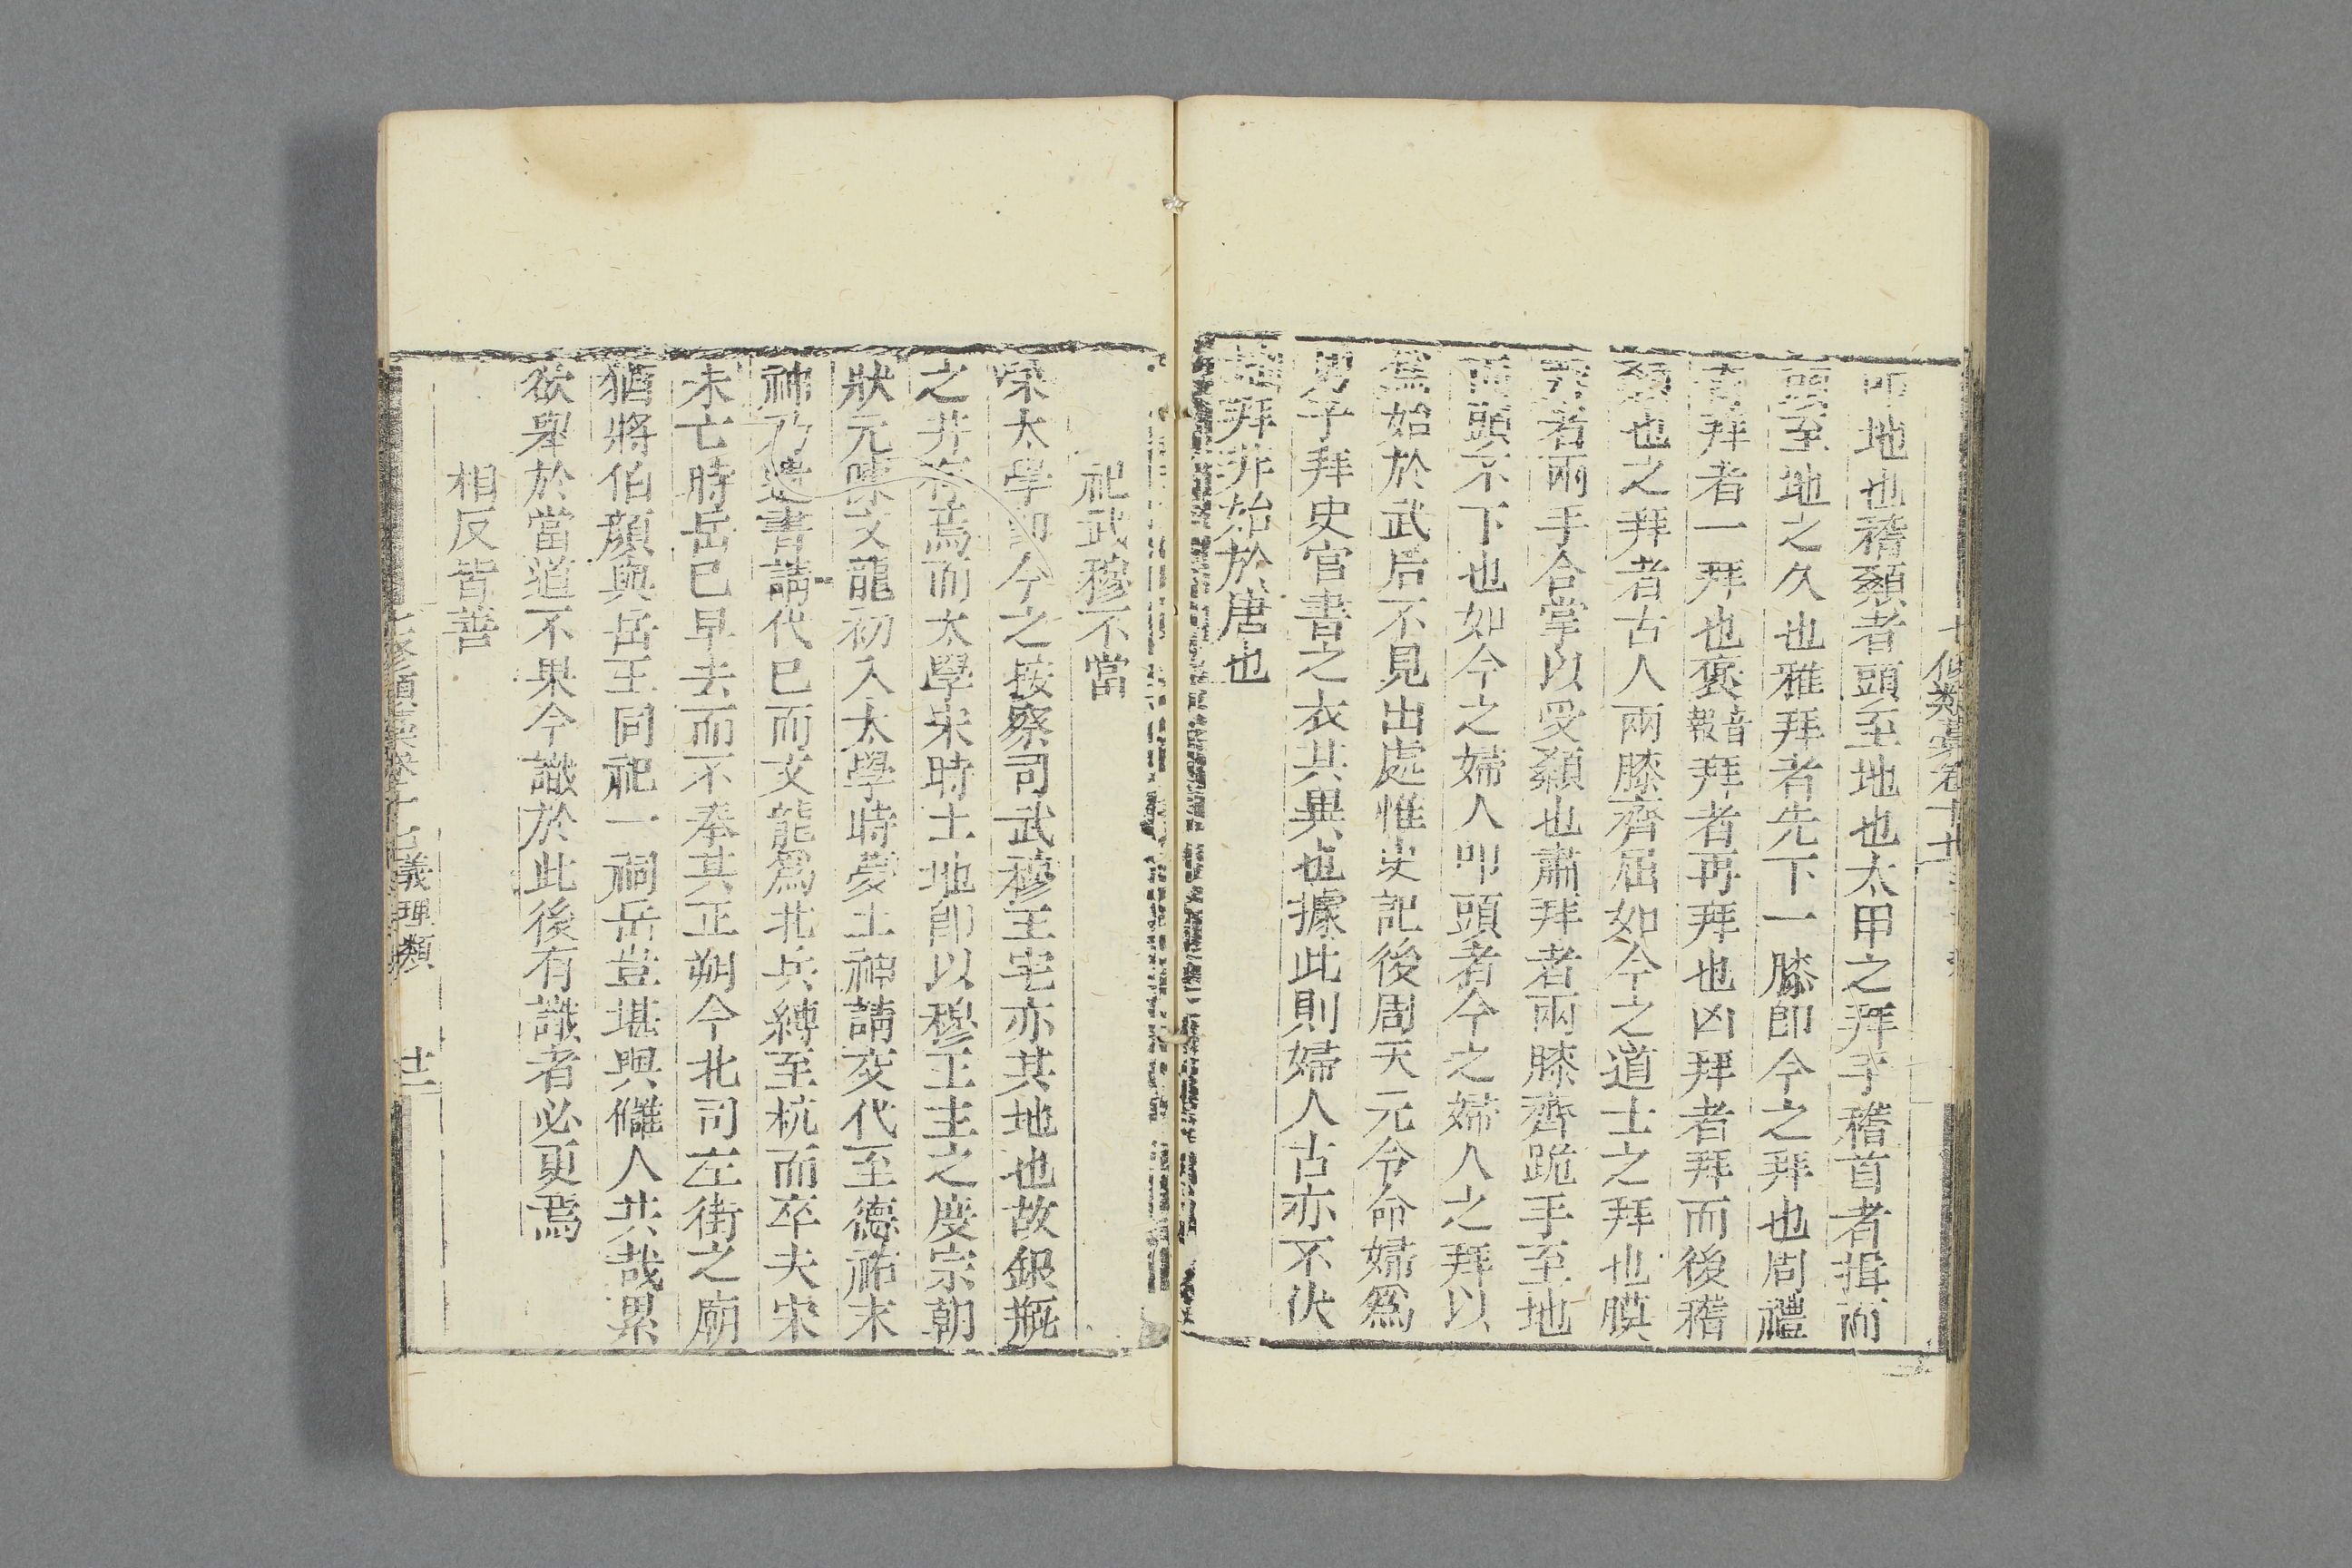 叩地也稽顙者頭至地也太甲之拜手稽首者揖而
頭至地之久也雅拜者先下一膝即今之拜也周禮
奇拜者一拜也褒音報拜者再拜也凶拜者拜而後稽
顙也之拜者古人兩膝齊屈如今之道士之拜也膜
拜者兩手合掌以受顙也肅拜者兩膝齊跪手至地
而頭不下也如今之婦人叩頭者今之婦人之拜以
爲始於武后不見出處惟史記後周天元令命婦爲
男子拜史官書之衣其異也據此則婦人古亦不伏
拜非始於唐也
祀武穆不當
宋太學即今之按察司武穆王宅亦其地也故銀瓶
之井存焉而太學宋時土地即以穆王主之度宗朝
狀元陳文龍初入太學時夢土神請交代至德祐末
神乃遺書請代巳而文龍爲北兵縛至杭而卒夫宋
未亡時岳巳早去而不奉其正朔今北司左街之廟
猶將伯顏與岳王同祀一祠岳豈堪與讎人共哉累
欲舉於當道不果今識於此後有識者必更焉
相反皆善
七修類藁卷十七義理類 十二